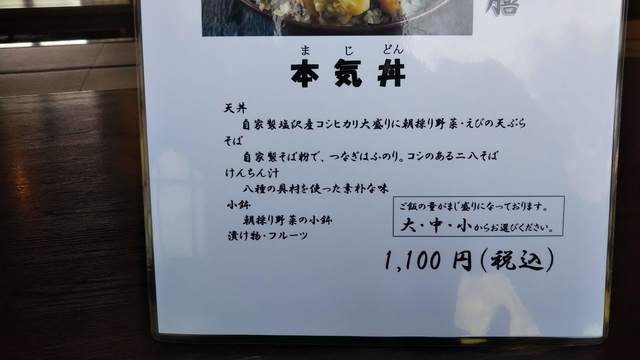 膳
まじどん
本気丼
天丼
自家製塩沢産コシヒカリ大盛りに朝採り野菜・えびの天ぷら
そば
自家製そば粉で、つなぎはふのり。コシのある二八そば
けんちん汁
八種の具材を使った素朴な味
小鉢
朝採り野菜の小鉢
漬け物・フルーツ
ご飯の量がまじ盛りになっております。
大・中・小からお選びください。
1,100円(税込)